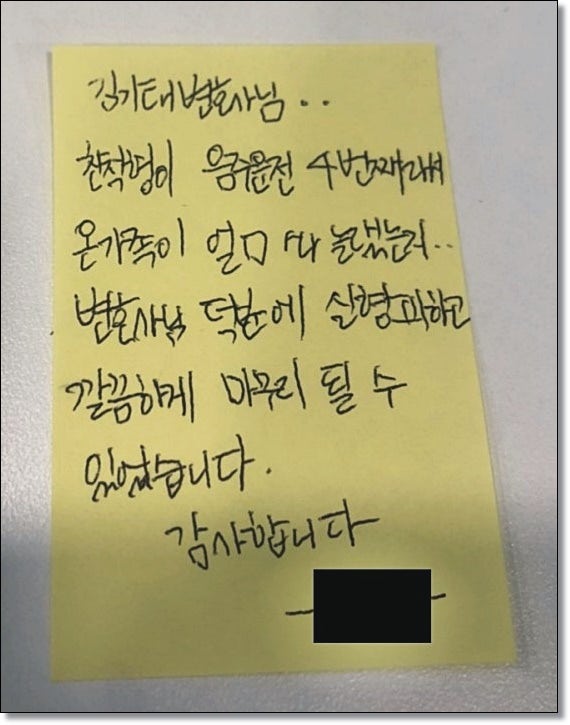 김기태변호사님..
친착영이 음주운전 4번째라서
온가족이 얼마나 놀랬는지..
변호사님 덕분에 실형피하고
깔끔하게 마무리 될 수
있었습니다.
감사합니다